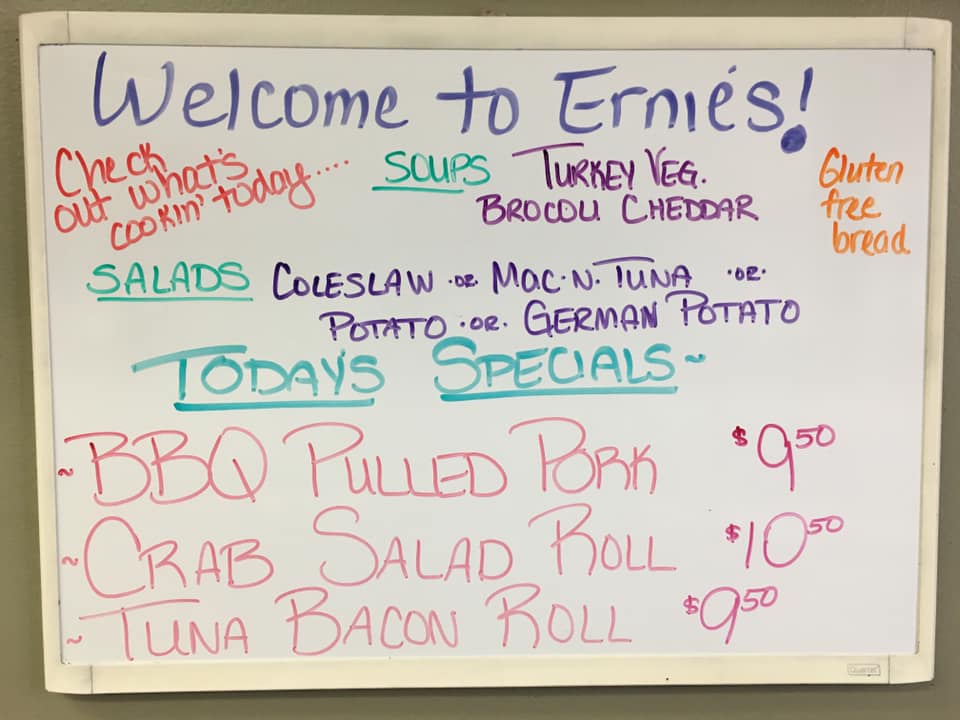 Welcome to Ernie's!
Check
out what's
cookin' today....
SOUPS TURKEY VEG.
BROCOLI CHEDDAR
Gluten
free
bread
SALADS COLESLAW ·OR· MAC·N·TUNA ·OR·
POTATO ·OR· GERMAN POTATO
TODAY'S SPECIALS~
~BBQ PULLED PORK $9.50
~CRAB SALAD ROLL $10.50
~TUNA BACON ROLL $9.50
Quartet